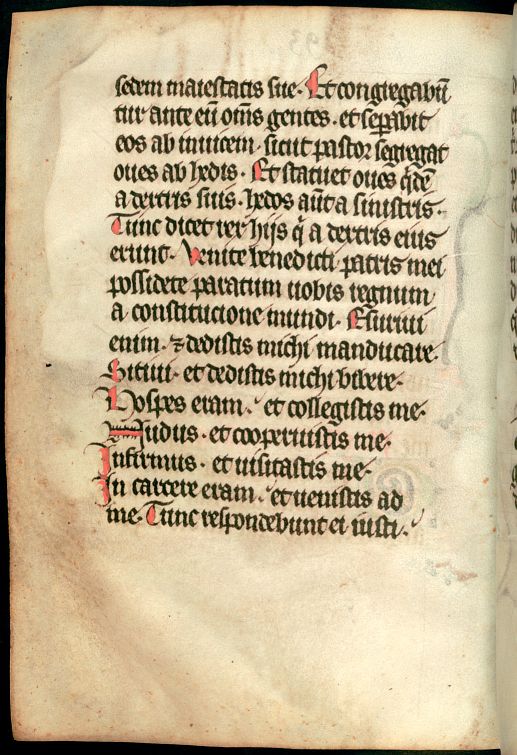 sedem maiestatis sue. Et congregabū
tur ante eū om̄s gentes. et sepabit
eos ab inuicem. sicut pastor segregat
oues ab hedis. Et statuet oues qͥdē
a dextris suis. hedos aūt a sinistris.
Tunc dicet rex hijs q̄ a dextris eius
erunt. Venite benedicti patris mei
possidete paratum uobis regnum
a constitucione mundi. Esuriui
enim. ⁊ dedistis michi manducare.
Sitiui. et dedistis michi bibere.
Hospes eram. et collegistis me.
Nudus. et cooperuistis me.
Infirmus. et uisitastis me.
In carcere eram. et uenistis ad
me. Tunc respondebunt ei iusti.